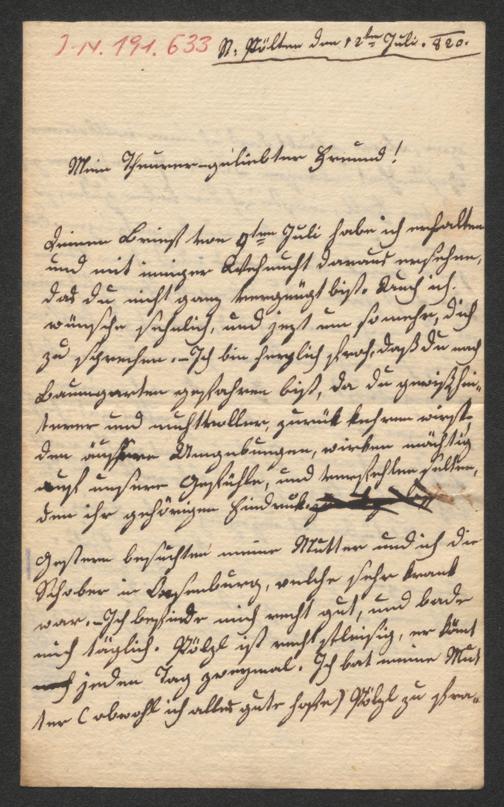 I. N. 191.633 St: Pölten den 12ten Juli. 820.
Mein Theurer-geliebter Freund!
Deinen Brief von 9ten Juli habe ich erhalten
und mit inniger Wehmuth daraus ersehen,
daß du nicht ganz vergnügt bist. Auch ich
wünsche sehnlich, und jezt um so mehr, dich
zu sprechen. – Ich bin herzlich froh, daß du nach
Baumgarten gefahren bist, da du gewiß hei-
terer und muthvoller zurück kehren wirst,
den äußere Umgebungen, wirken mächtig
auf unsere Gefühle, und verfehlen selten,
den ihr gehörigen Eindruk.
Gestern besuchten meine Mutter und ich die
Schober in Ochsenburg, welche sehr krank
war. – Ich befinde mich recht gut, und bade
mich täglich. Pölzl ist recht fleisig, er kömt
jeden Tag zweymal. Ich bat meine Mut
ter (obwohl ich alles gute hoffe) Pölzl zu fra-